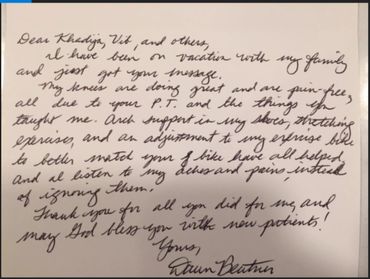 Dear Khadija, Vib, and others,
I have been on vacation with my family
and just got your message.
My knees are doing great and are pain-free,
all due to your P.T. and the things you
taught me. Arch support in my shoes, stretching
exercises, and an adjustment to my exercise bike
to better match your bike have all helped,
and I listen to my aches and pains, instead
of ignoring them.
Thank you for all you did for me, and
may God bless you with new patients!
Yours,
Dawn